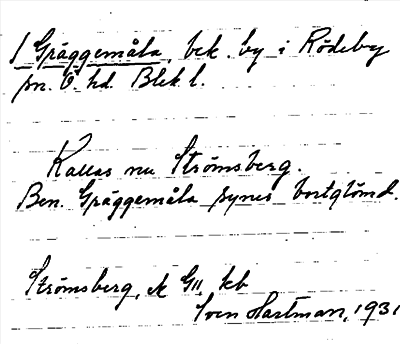 Gräggemåla, bek. by i Rödeby
sn. Ö. hd. Blek. l.
Kallas nu Strömsberg.
Ben. Gräggemåla synes bortglömd.
Strömsberg, GII, kb
Sven Hartman, 1931